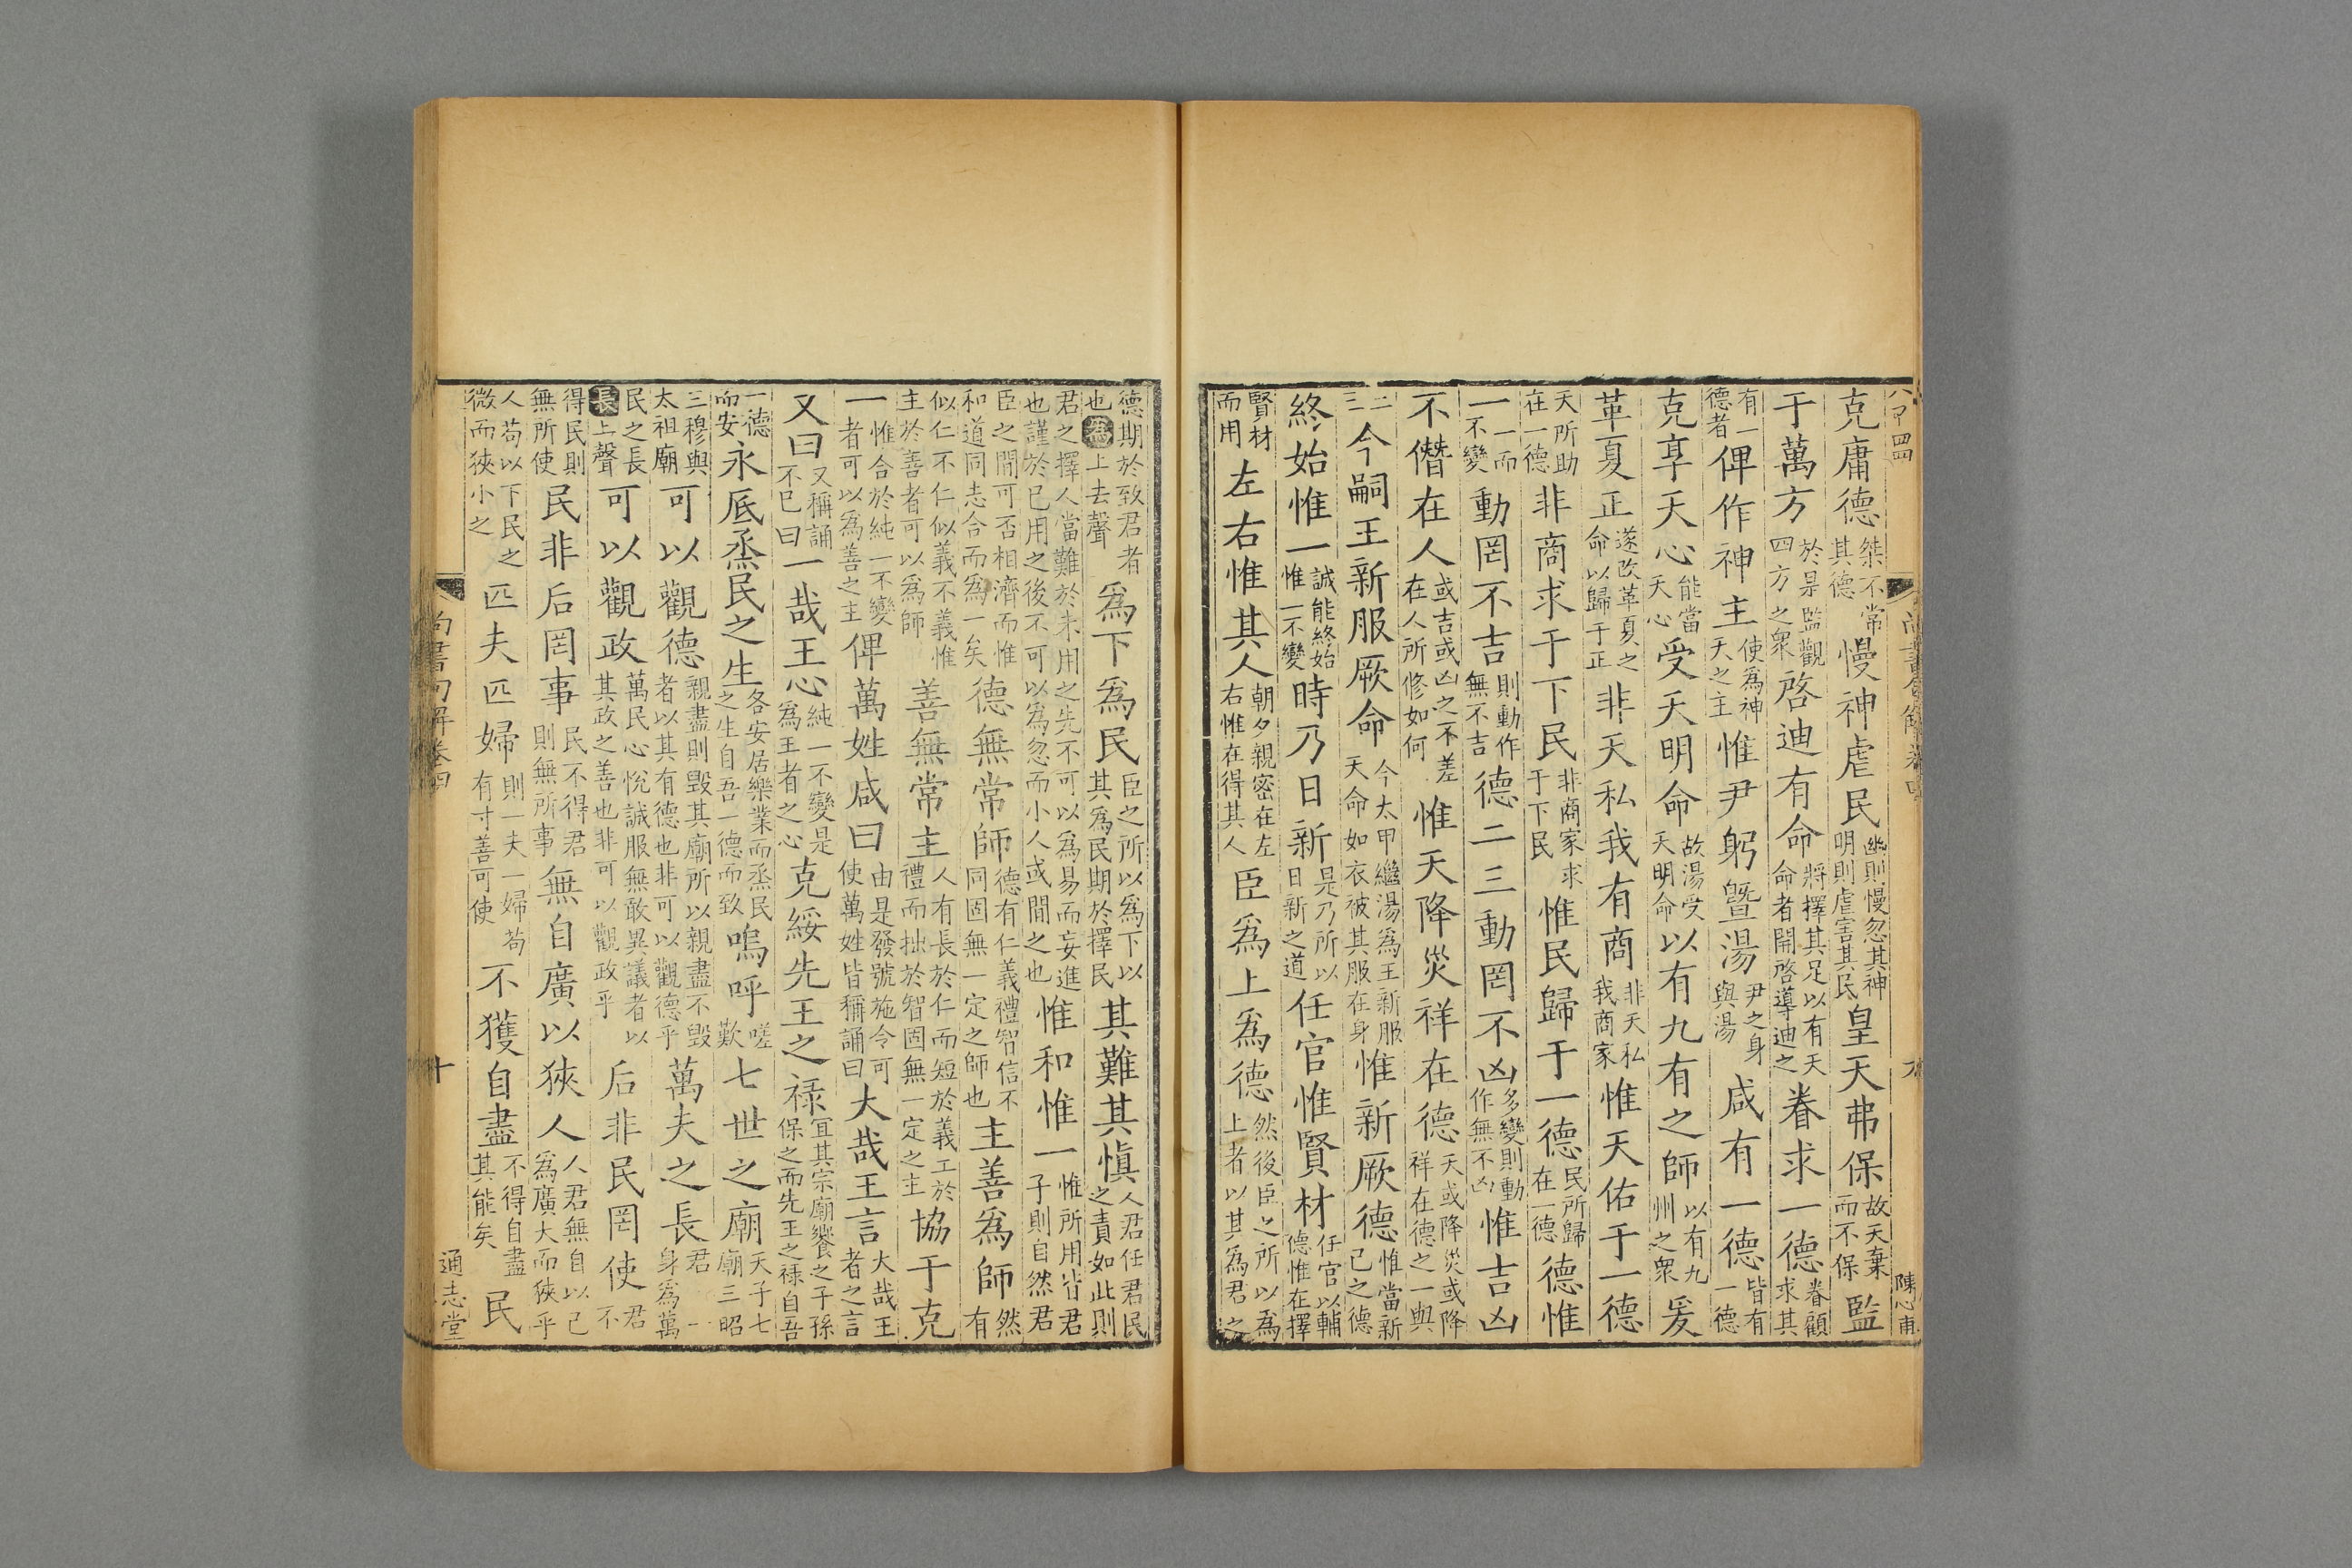 尚書句解卷四 九 陳心甫
克庸德桀不常其德慢神虐民幽則慢忽其神明則虐害其民皇天弗保故天棄而不保監
于萬方於是監觀四方之衆啓迪有命將擇其足以有天命者開啓導迪之眷求一德眷顧求其
有一德者俾作神主使爲神天之主惟尹躬暨湯尹之身與湯咸有一德皆有一德
克享天心能當天心受天明命故湯受天明命以有九有之師以有九州之衆爰
革夏正遂改革夏之命以歸于正非天私我有商非天私我商家惟天佑于一德
天所助在一德非商求于下民非商家求于下民惟民歸于一德民所歸在一德德惟
一一而不變動罔不吉則動作無不吉德二三動罔不凶多變則動作無不凶惟吉凶
不僭在人或吉或凶之不差在人所修如何惟天降災祥在德天或降災或降祥在德之一與
二三今嗣王新服厥命今太甲繼湯爲王新服天命如衣被其服在身惟新厥德惟當新己之德
終始惟一誠能終始惟一不變時乃日新是乃所以日新之道任官惟賢材任官以輔德惟在擇
賢材而用左右惟其人朝夕親密在左右惟在得其人臣爲上爲德然後臣之所以爲上者以其爲君之
德期於致君者也爲上去聲爲下爲民臣之所以爲下以其爲民期於擇民其難其愼人君任君民之責如此則
君之擇人當難於未用之先不可以爲易而妄進也謹於已用之後不可以爲忽而小人或間之也惟和惟一惟所用皆君子則自然君
臣之間可否相濟而惟和道同志合而爲一矣德無常師德有仁義禮智信不同固無一定之師也主善爲師然有
似仁不仁似義不義惟主於善者可以爲師善無常主人有長於仁而短於義工於禮而拙於智固無一定之主協于克
一惟合於純一不變者可以爲善之主俾萬姓咸曰由是發號施令可使萬姓皆稱誦曰大哉王言大哉王者之言
又曰又稱誦不已曰一哉王心純一不變是爲王者之心克綏先王之祿宜其宗廟饗之子孫保之而先王之祿自吾
一德而安永厎烝民之生各安居樂業而烝民之生自吾一德而致嗚呼嗟歎七世之廟天子七廟三昭
三穆與太祖廟可以觀德親盡則毀其廟所以親盡不毀者以其有德也非可以觀德乎萬夫之長君一身爲萬
民之長長上聲可以觀政萬民心悅誠服無敢異議者以其政之善也非可以觀政乎后非民罔使君不
得民則無所使民非后罔事民不得君則無所事無自廣以狹人人君無自以己爲廣大而狹乎
人苟以下民之微而狹小之匹夫匹婦則一夫一婦苟有寸善可使不獲自盡不得自盡其能矣民
尚書句解卷四 十 通志堂